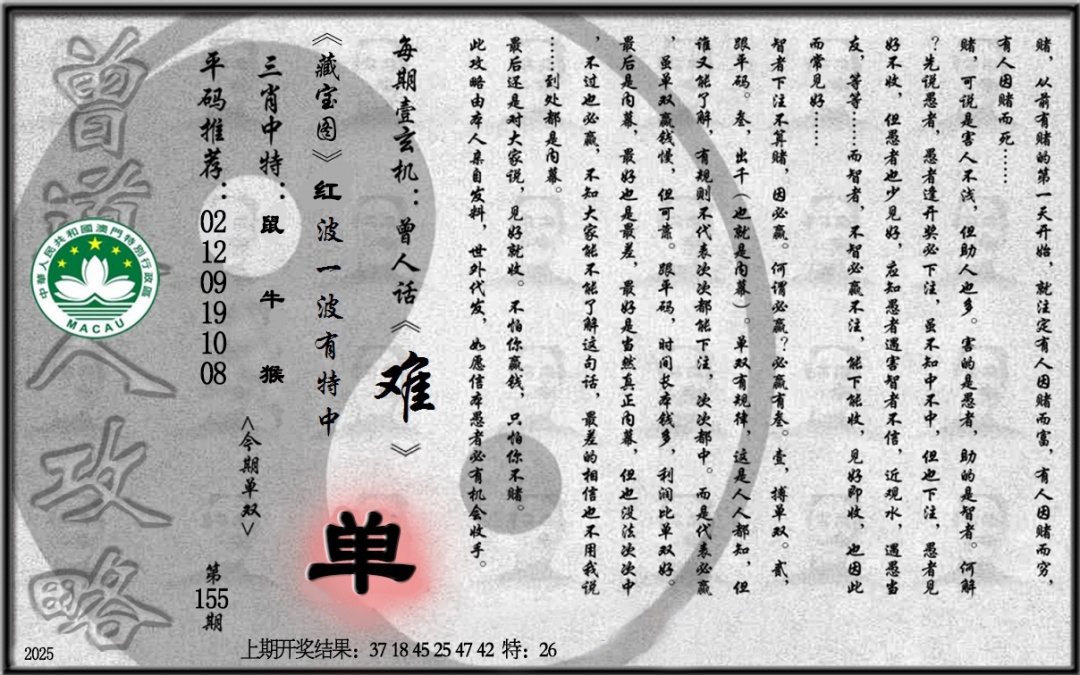 赌，从前有赌的第一天开始，就注定有人因赌而富，有人因赌而穷，
有人因赌而死……
赌，可说是害人不浅，但助人也多。害的是愚者，助的是智者。何解
？先说愚者，愚者逢开奖必下注，虽不知中不中，但也下注，愚者见
好不收，但愚者也少见好，应知愚者遇害智者不信，近观水，遇愚当
友，等等……而智者，不智必赢不注，能下能收，见好即收，也因此
而常见好……
智者下注不算赌，因必赢。何谓必赢？必赢有叁。壹，搏单双。贰，
跟平码。叁，出千（也就是内幕）。单双有规律，这是人人都知，但
谁又能了解，有规则不代表次次都能下注，次次都中。而是代表必赢
，虽单双赢钱慢，但可靠。跟平码，时间长本钱多，利润比单双好。
最后是内幕，最好也是最差，最好是当然真正内幕，但也没法次次中
，不过也必赢，不知大家能不能了解这句话，最差的相信也不用我说
……到处都是内幕。
最后还是对大家说，见好就收。不怕你赢钱，只怕你不赌。
此攻略由本人亲自发料，世外代发，如愿信本愚者必有机会收手。
每期壹玄机：曾人话《难》
《藏宝图》红波一波有特中
三肖中特：鼠 牛 猴
平码推荐：02 12 09 19 10 08
<今期单双>
单
第155期
曾道人攻略
中華人民共和國澳門特別行政區
MACAU
2025
上期开奖结果：37 18 45 25 47 42 特：26